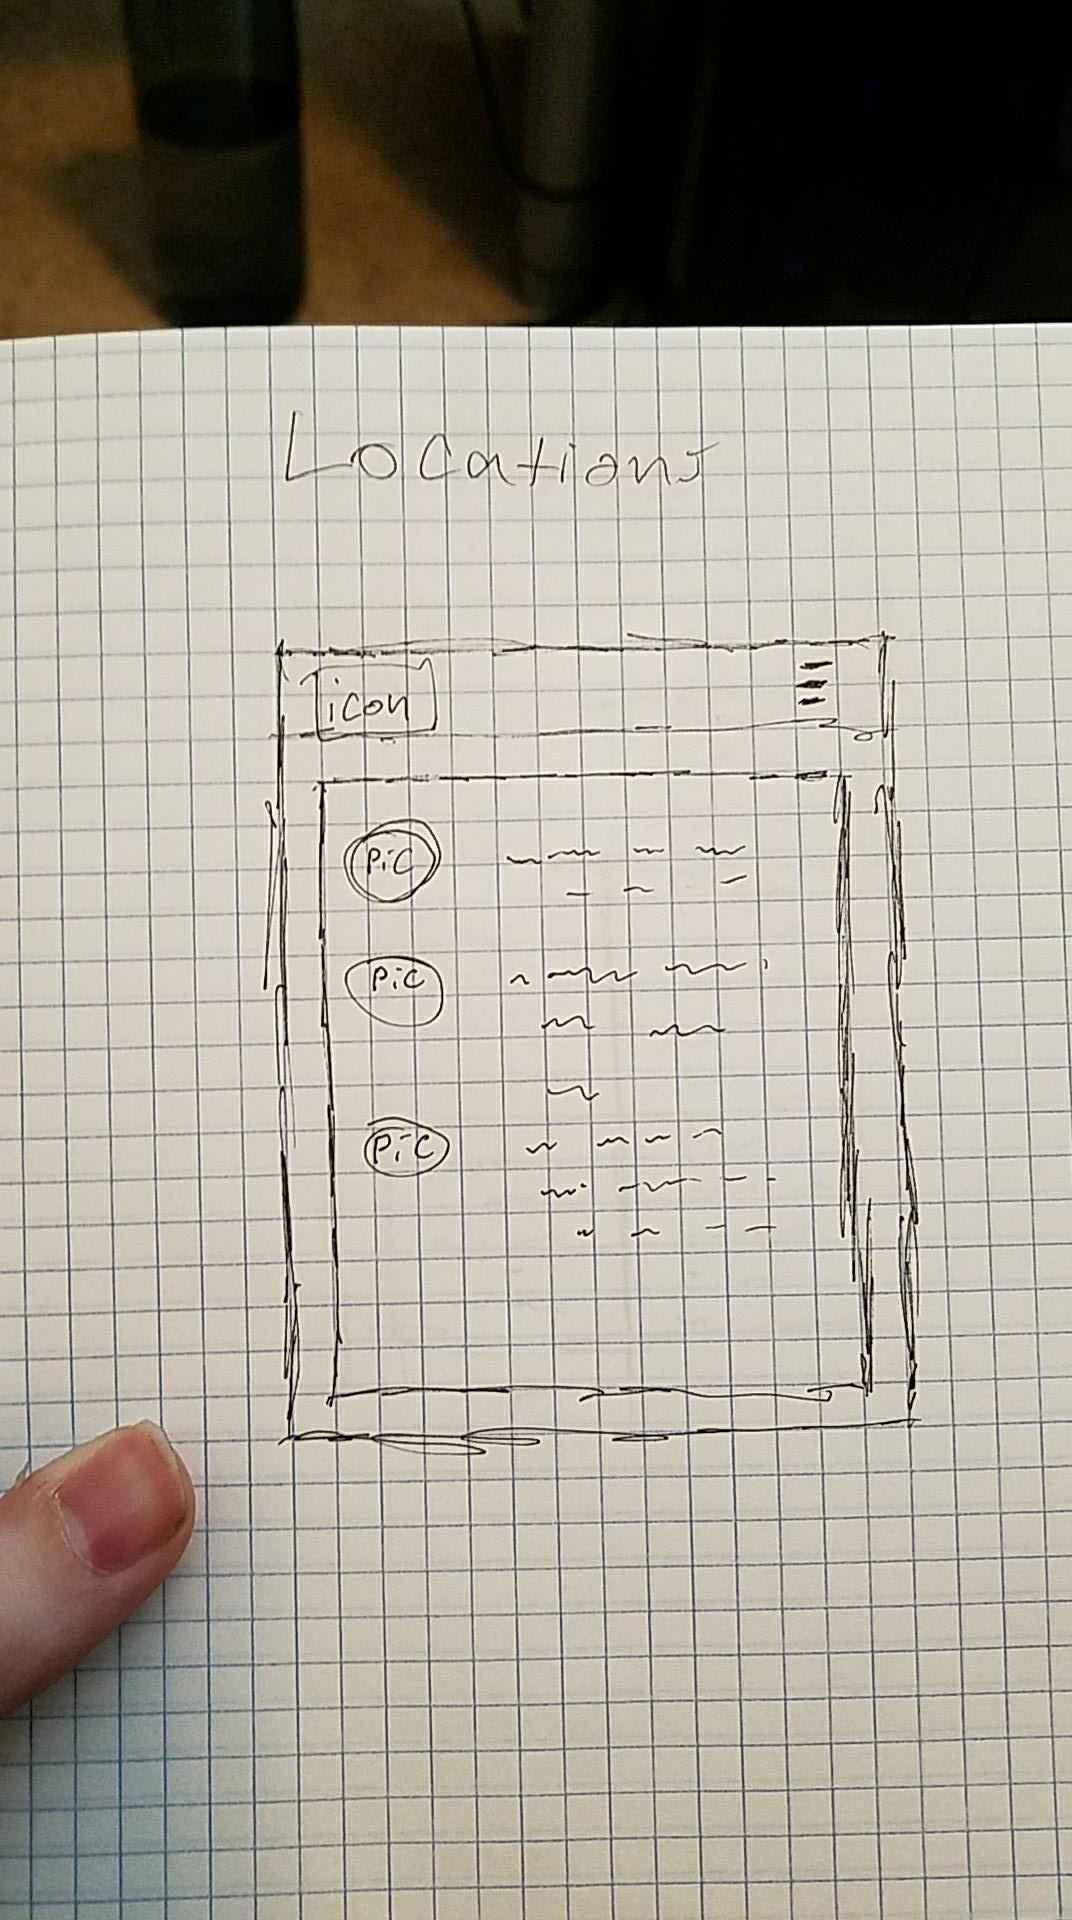 Locations
icon
Pic
Pic
Pic